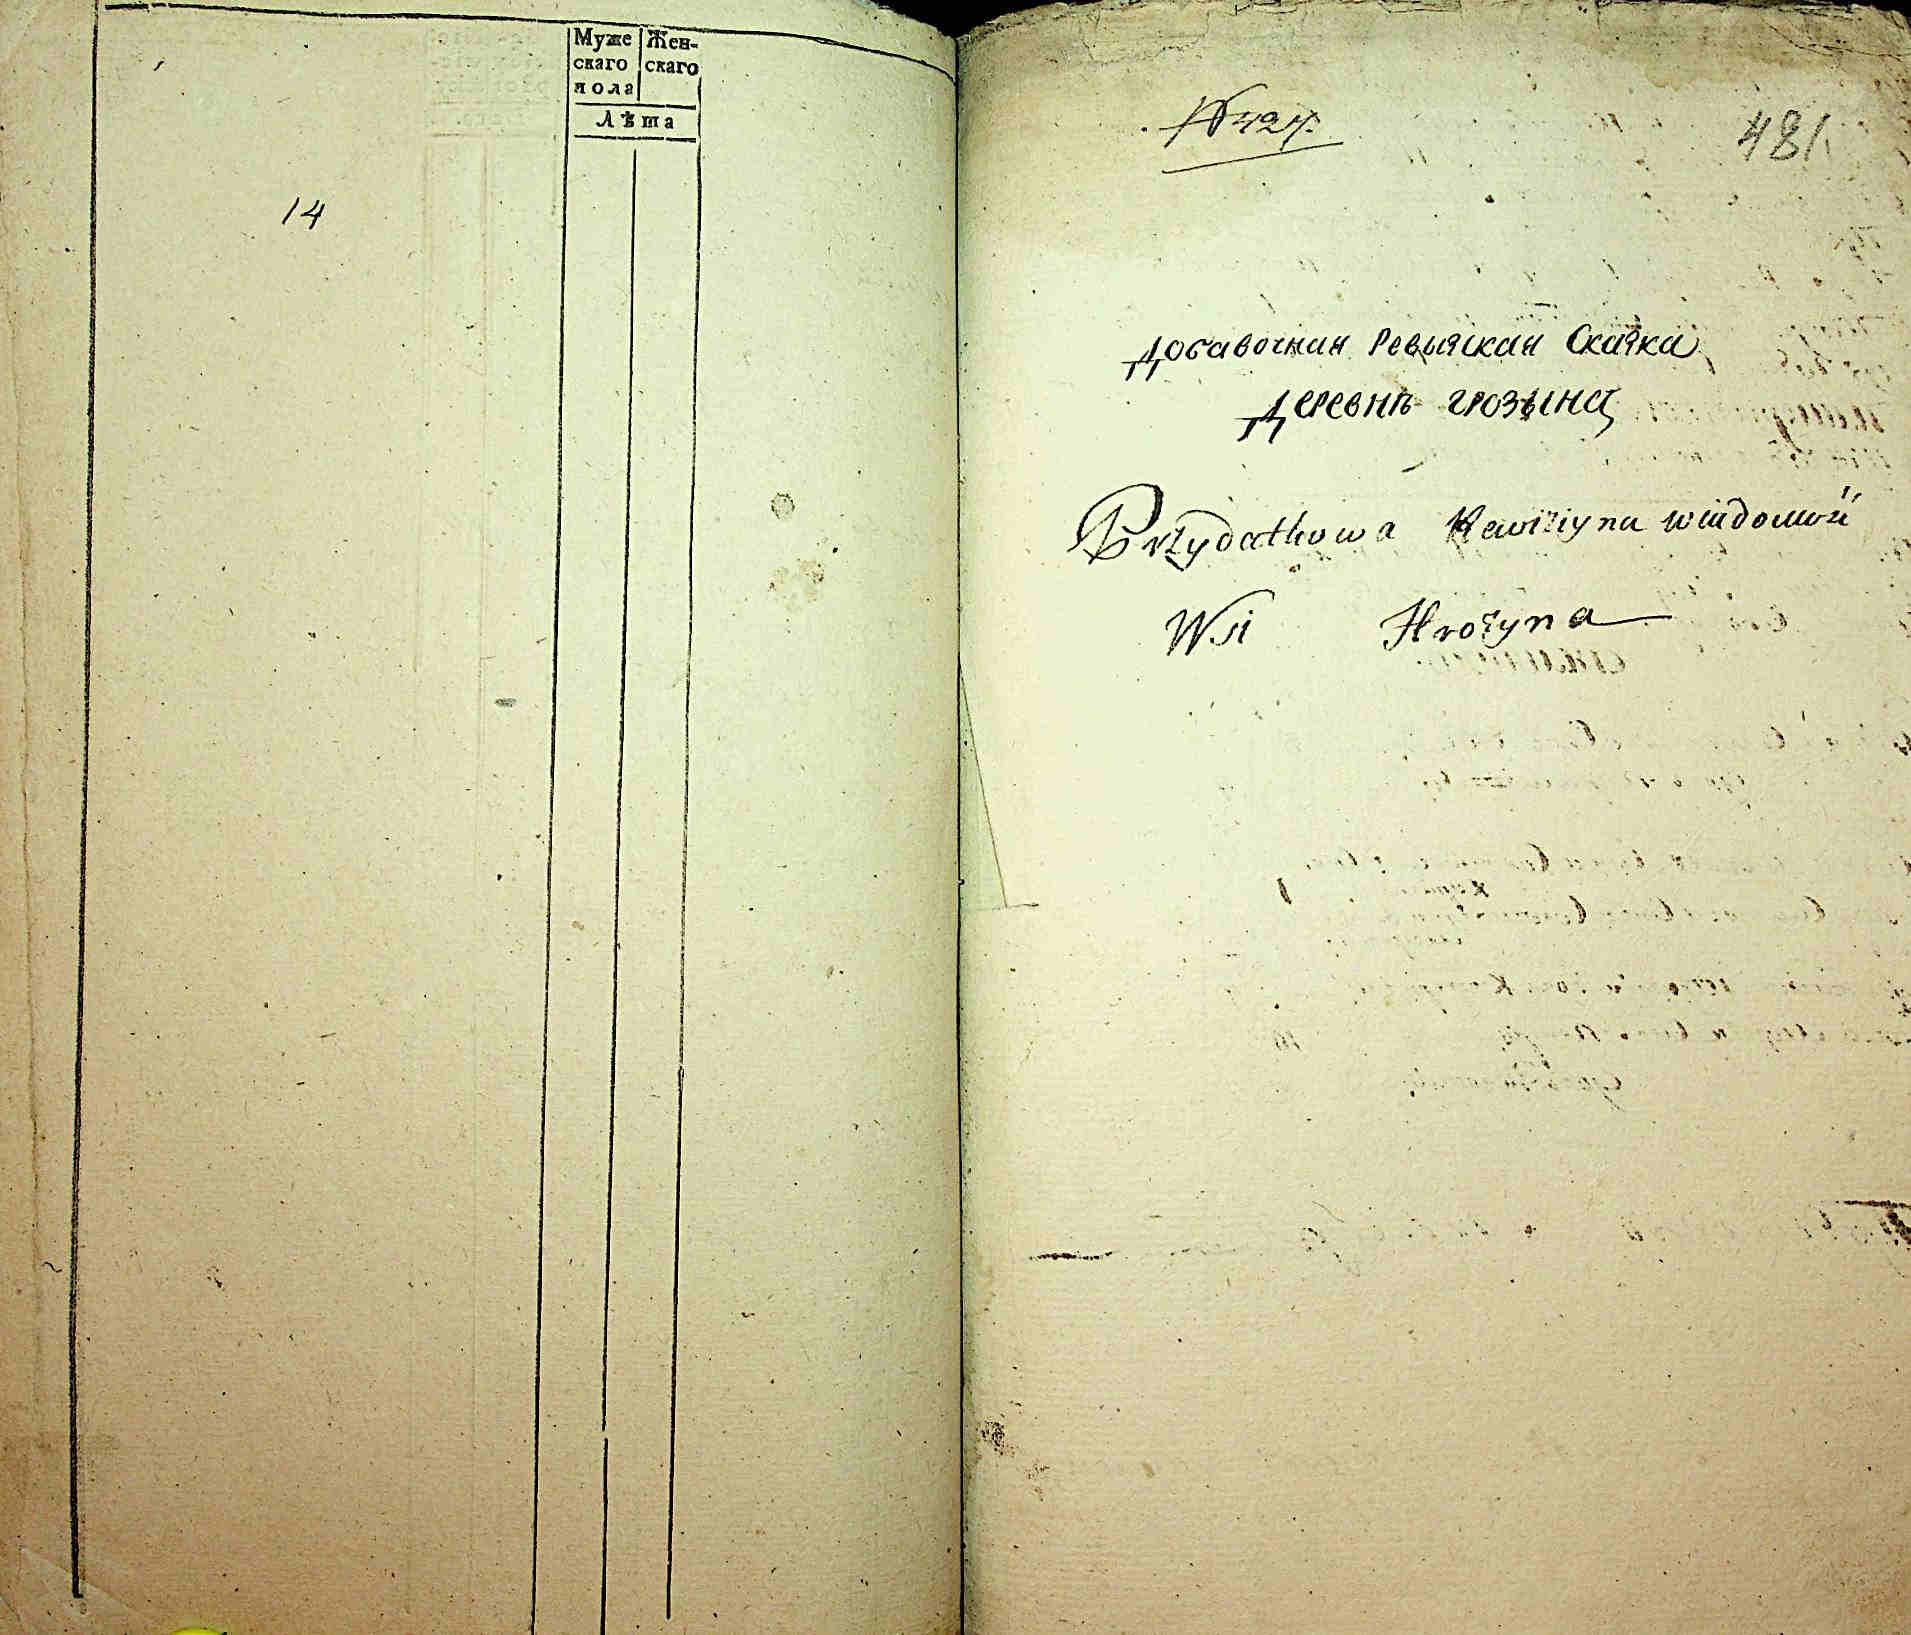 Муже Жен-
скаго скаго
пола
Лѣта
14
№ 424.
481
Добавочная Ревызская Сказка
Деревнѣ грозына
Przydatkowa Rewizyyna wiadomość
Wsi Hrozyna